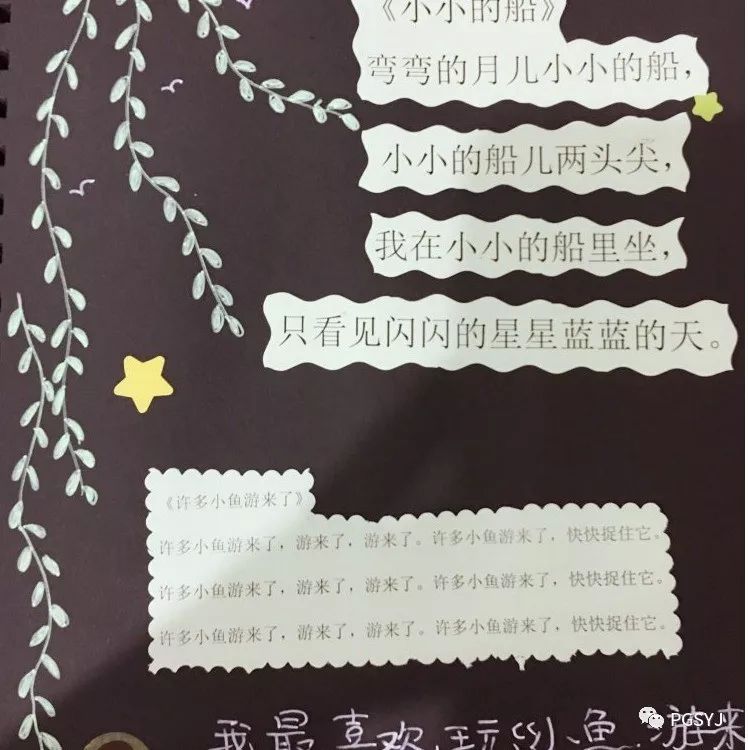 《小小的船》
弯弯的月儿小小的船，
小小的船儿两头尖，
我在小小的船里坐，
只看见闪闪的星星蓝蓝的天。
《许多小鱼游来了》
许多小鱼游来了，游来了，游来了。许多小鱼游来了，快快捉住它。
许多小鱼游来了，游来了，游来了。许多小鱼游来了，快快捉住它。
许多小鱼游来了，游来了，游来了。许多小鱼游来了，快快捉住它。
我最喜欢玩“小鱼游来
PGSYJ